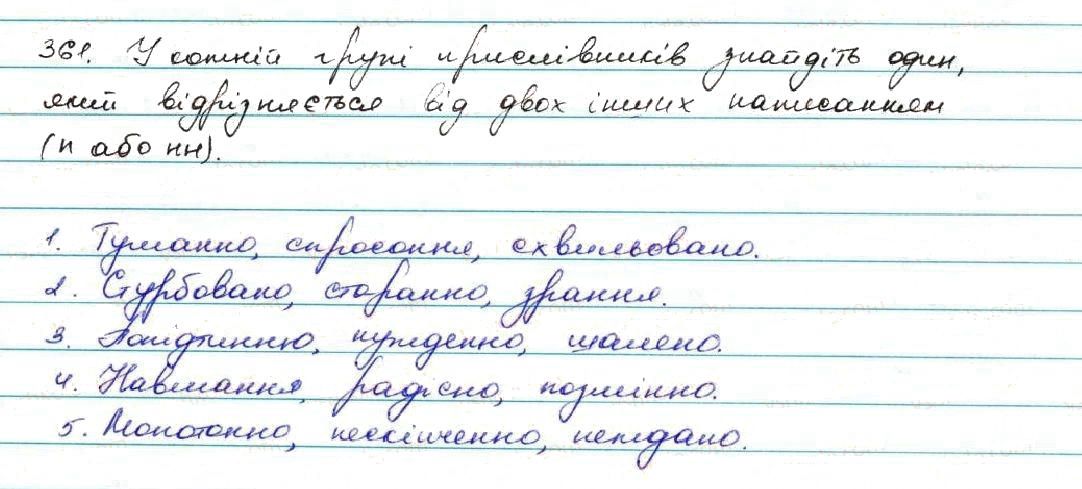 361. У кожній групі прислівників знайдіть один,
який відрізняється від двох інших написанням
(н або нн).
1. Туманно, спросоння, схвильовано.
2. Стурбовано, старанно, зрання.
3. Попідтинню, нужденно, шалено.
4. Навмання, радісно, позмінно.
5. Монотонно, нескінченно, неждано.